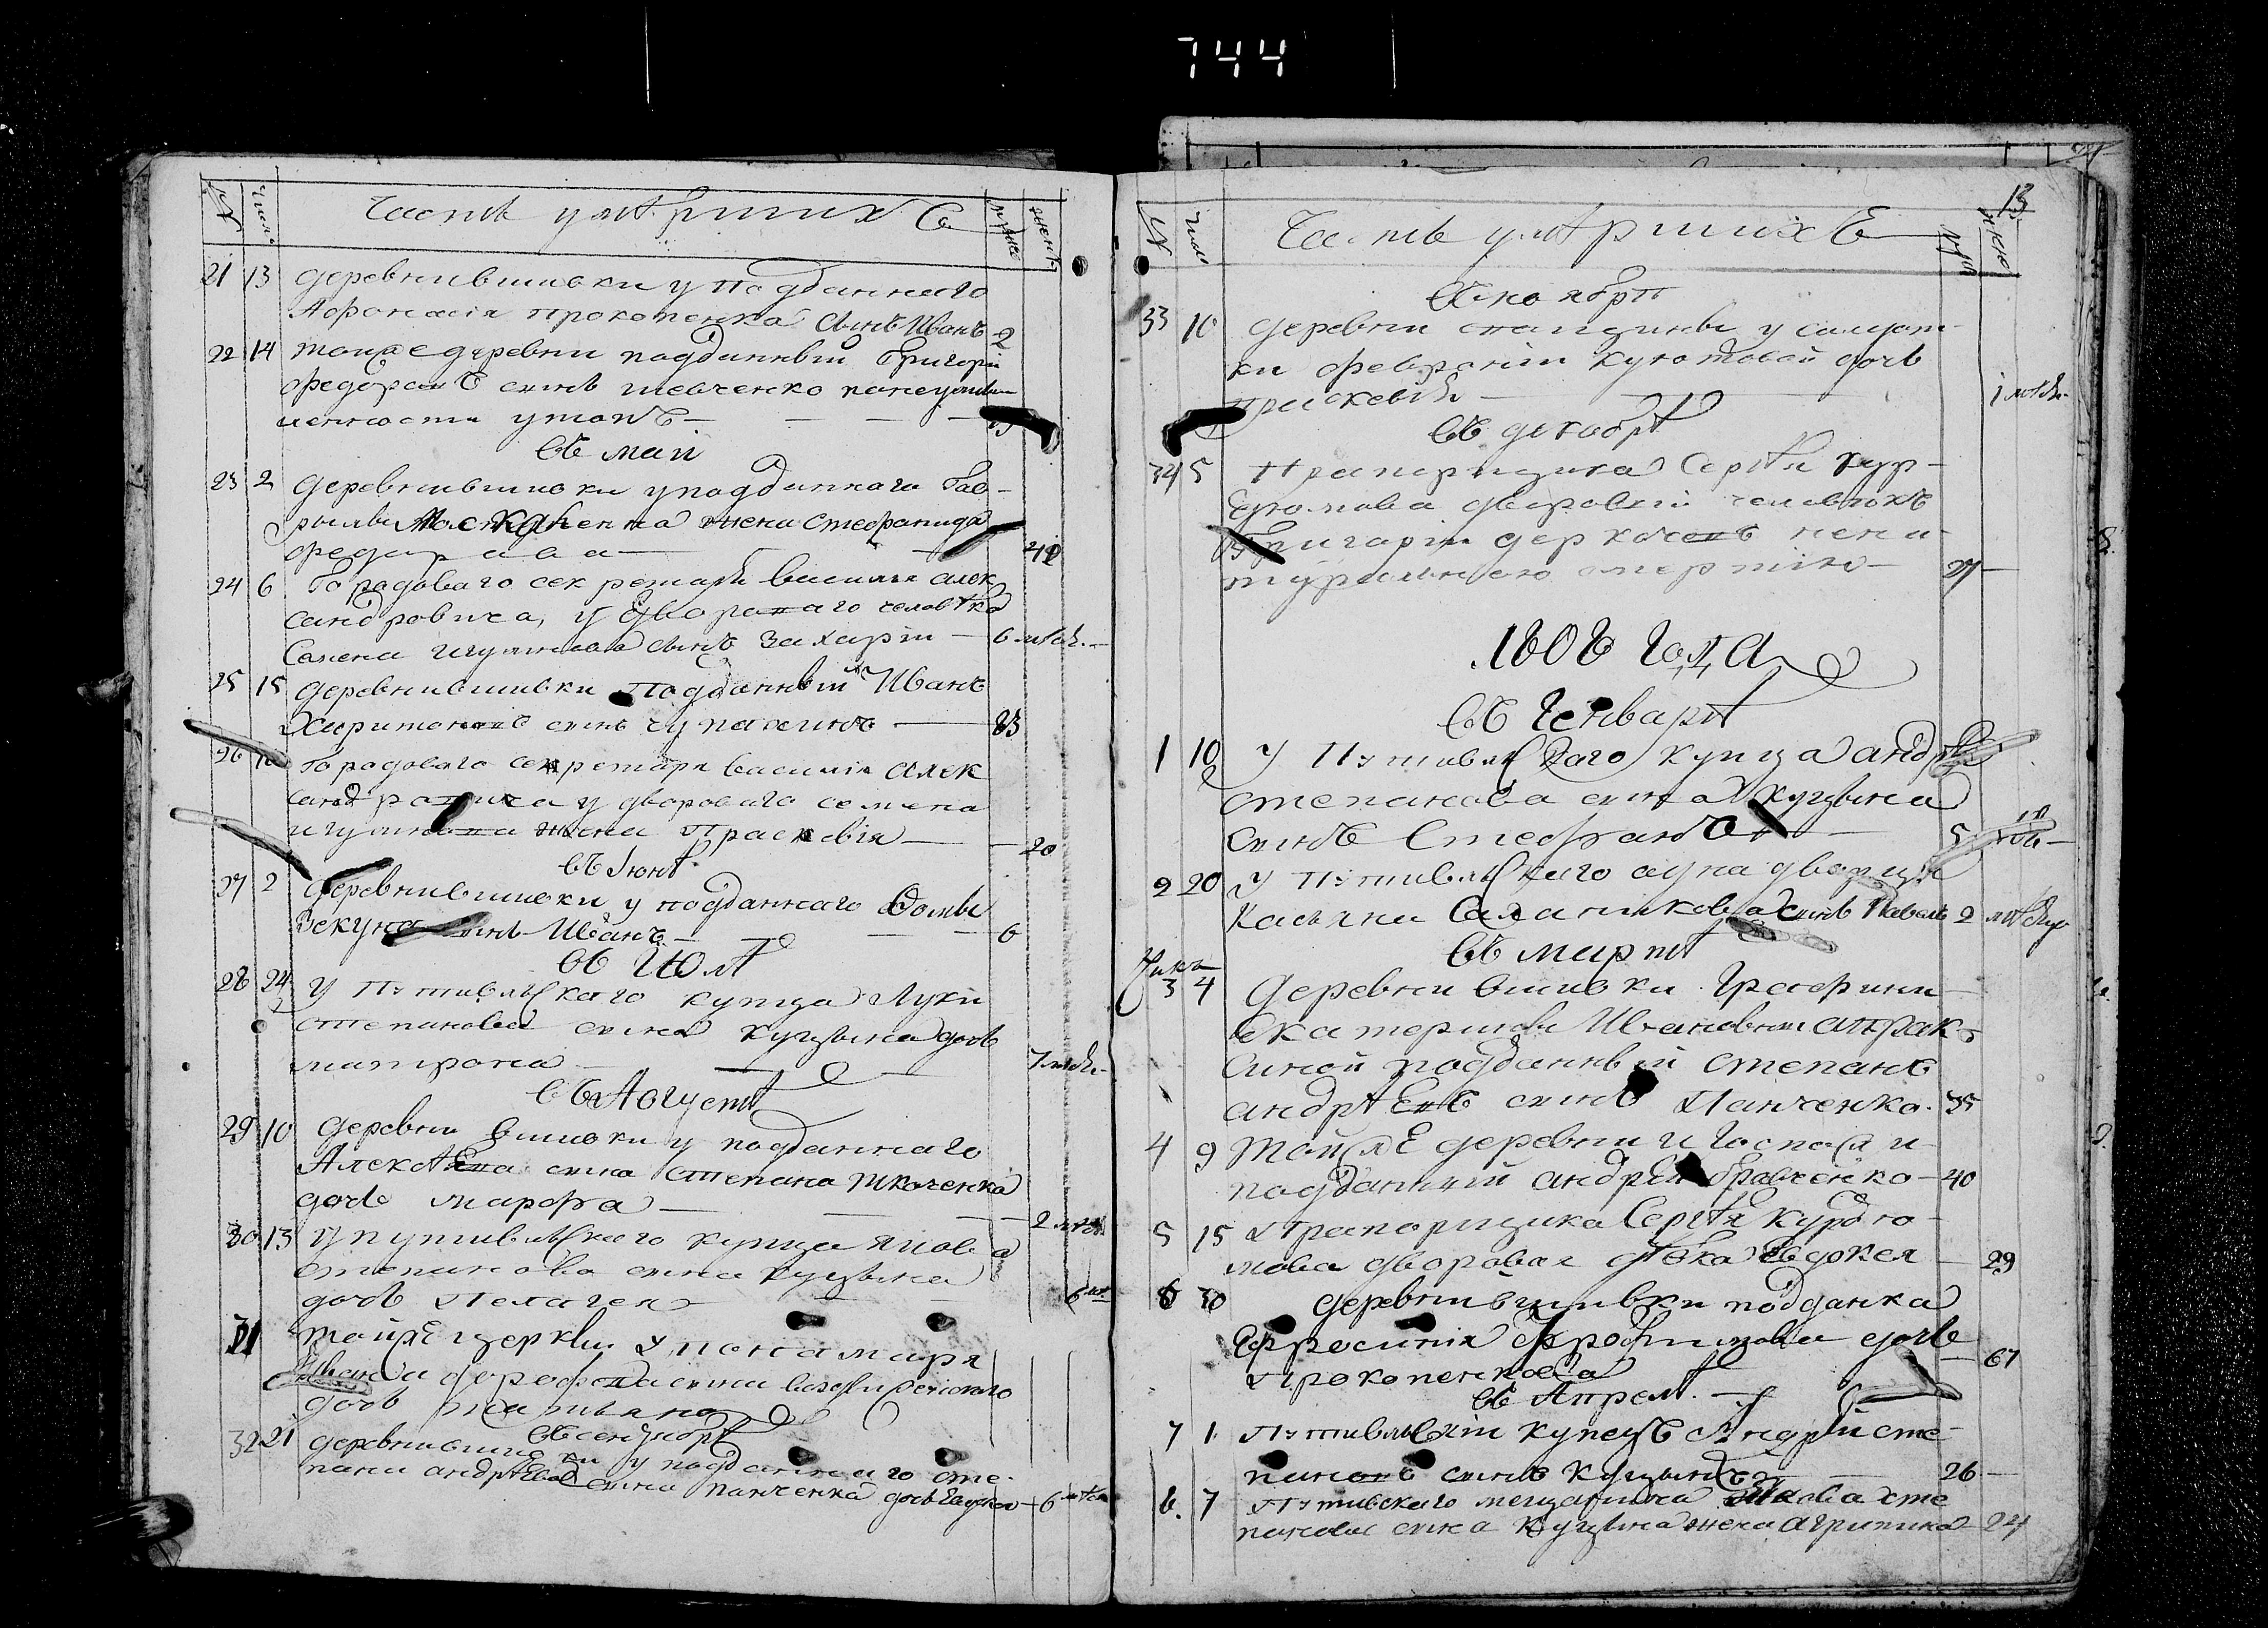 744
№ Числ. Часть умѣршихъ муже женъ
21 13 деревни вшивки у подданнаго
Афонасія прокопенка сынъ Иванъ 2
22 14 тоижє деревни подданный Григорій
федоровъ сынъ шевченко
утопъ
въ маи
23 2 деревни вшивки у подданнаго Гав-
рылы жена стефанида
федорова 41
24 6 Городоваго секретаря василія алек
сандровича, у двороваго человѣка
Самена игумнова сынъ Захарій 6 мѣс.
25 15 деревни вшивки Подданный Иванъ
Харитоновъ сынъ
26 Городоваго секретаря василія алек
сандровича у двороваго семена
игумнова жена Прасковія 20
въ Іюнѣ
27 2 деревни вшивки у подданнаго Фомы
сынъ Иванъ 6
въ Июлѣ
28 24 У Путивльскаго купца Луки
степанова сына куцына дочь
матрона 7 мѣс.
въ Августѣ
29 10 деревни вшивки у подданнаго
Алексѣева сына степана ткаченка
дочь марфа 2 мѣс.
30 13 У путивльскаго купца якова
степанова сына куцына
дочь Пелагея 6 мѣ
31 тойжЕ церкви у понамаря
Ивана дорофеева сына
дочь татьяна
въ сентябрѣ
32 21 деревни вшивки у подданнаго сте-
пана андрѣева сына панченка дочь 6 мѣс
13
№ Числ Часть умѣршихъ муж жен
въ ноябрѣ
33 10 деревни у солдат-
ки февроніи дочь
прасковья 1 мѣс.
въ декабрѣ
34 5 Прапорщика Сергѣя кур-
дюмова дворовый человѣкъ
Григорій нена-
туральною смертію 27
1808 года
въ Генварѣ
1 10 У Путивльскаго купца андрѣя
степанова сына куцына
сынъ Стефанъ 5
2 20 У Путивльскаго однадворца
Касьяна сынъ Павелъ 2 мѣсяц
въ мартѣ
3 4 деревни вшивки Графини
екатерины Ивановны апрак-
синой подданный степанъ
андрѣевъ сынъ Панченко 35
4 9 тойжЕ деревни и Госпожи
подданный андрей кравченко 40
5 15 Прапорщика Сергѣя курдю-
мова дворовая дѣвка евдокея 29
6 30 деревни вшивкиподданка
Ефросинія трофимова дочь
прокопенкова 67
въ Апрелѣ
7 1 Путивльскій купецъ Андрѣй сте-
пановъ сынъ куцынъ 26
8 7 Путивскаго мещанина Якова сте
панова сына куцына жена агрипина 24